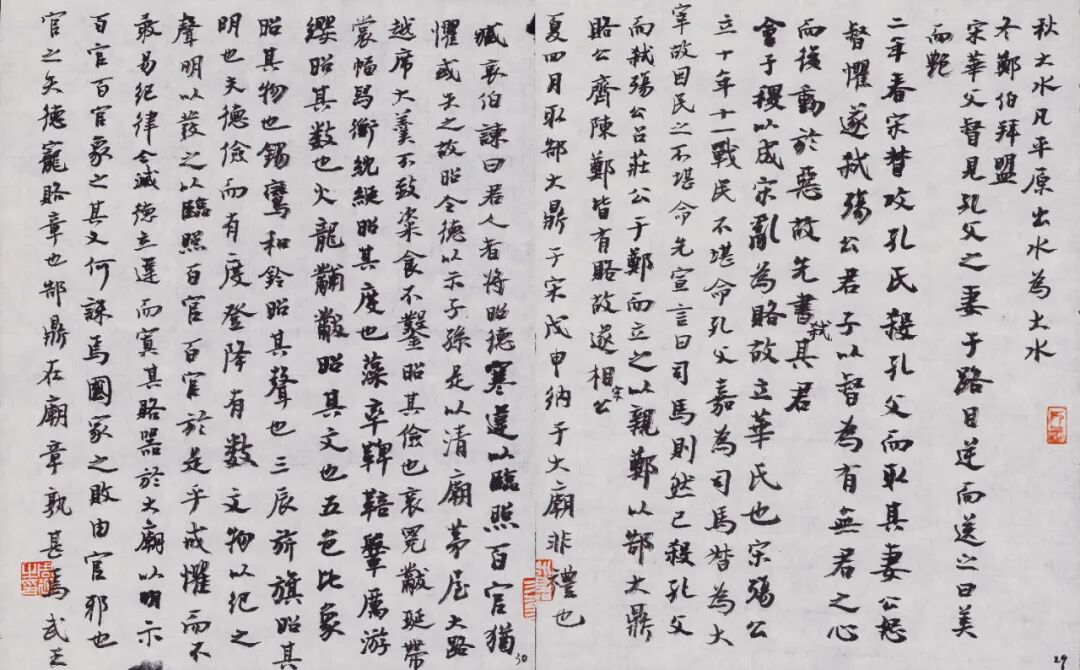 秋大水凡平原出水為大水
冬鄭伯拜盟
宋華父督見孔父之妻于路目逆而送之曰美
而艷
二年春宋督攻孔氏殺孔父而取其妻公怒
督懼遂弒殤公君子以督為有無君之心
而後動於惡故先書弒其君
會于稷以成宋亂為賂故立華氏也宋殤公
立十年十一戰民不堪命孔父嘉為司馬督為大
宰故因民之不堪命先宣言曰司馬則然已殺孔父
而弒殤公召莊公于鄭而立之以親鄭以郜大鼎
賂公齊陳鄭皆有賂故遂相宋公
夏四月取郜大鼎于宋戊申納于大廟非禮也
29
臧哀伯諫曰君人者將昭德塞違以臨照百官猶
懼或失之故昭令德以示子孫是以清廟茅屋大路
越席大羹不致粢食不鑿昭其儉也袞冕黻珽帶
裳幅舄衡紞綖昭其度也藻率鞞鞛鞶厲游
纓昭其數也火龍黼黻昭其文也五色比象
昭其物也鍚鸞和鈴昭其聲也三辰旂旗昭其
明也夫德儉而有度登降有數文物以紀之
聲明以發之以臨照百官百官於是乎戒懼而不
敢易紀律今滅德立違而寘其賂器於大廟以明示
百官百官象之其又何誅焉國家之敗由官邪也
官之失德寵賂章也郜鼎在廟章孰甚焉武王
30